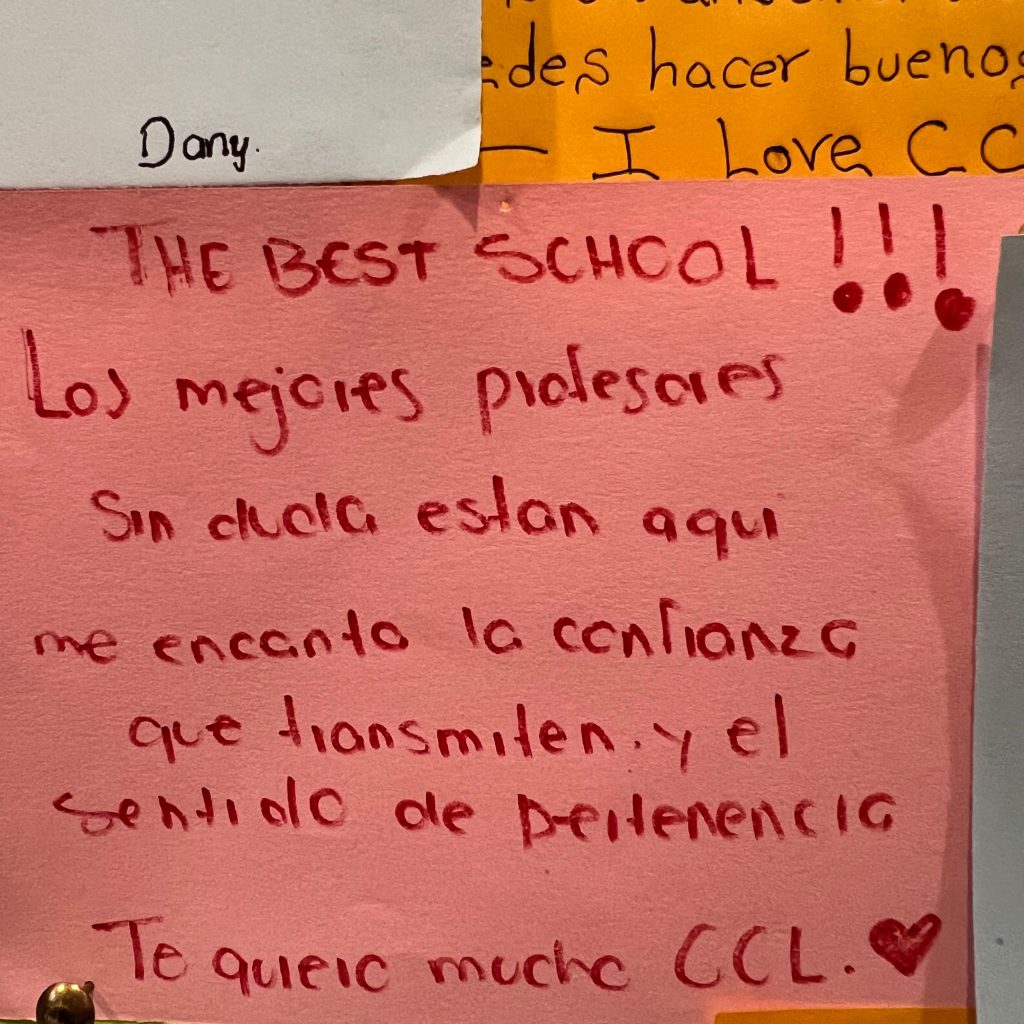 edes hacer buenos
Dany.
— I Love CC
THE BEST SCHOOL !!!
Los mejores profesores
Sin duda estan aqui
me encanta la confianza
que transmiten. y el
sentido de pertenencia
Te quiero mucho CCL. ♥